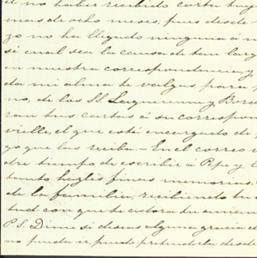 el no haber recibido carta tuya
mas de ocho meses, pues desde
zo no ha llegado ninguna á m
si cual sea la causa de tan larg
n nuestra correspondencia y
da mi alma te valgas para
no, de los S. S. y
ran tus cartas á su correspon
ville, el que está encargado de
yo que las reciba. En el correo
dre tiempo de escribir á Pepe y
tanto hazles finas memorias
de la familia, recibiendo tu
tud con que te adora tu aman
P.S. Dime si deseas alguna gracia d
no pueda ir puesto de desde